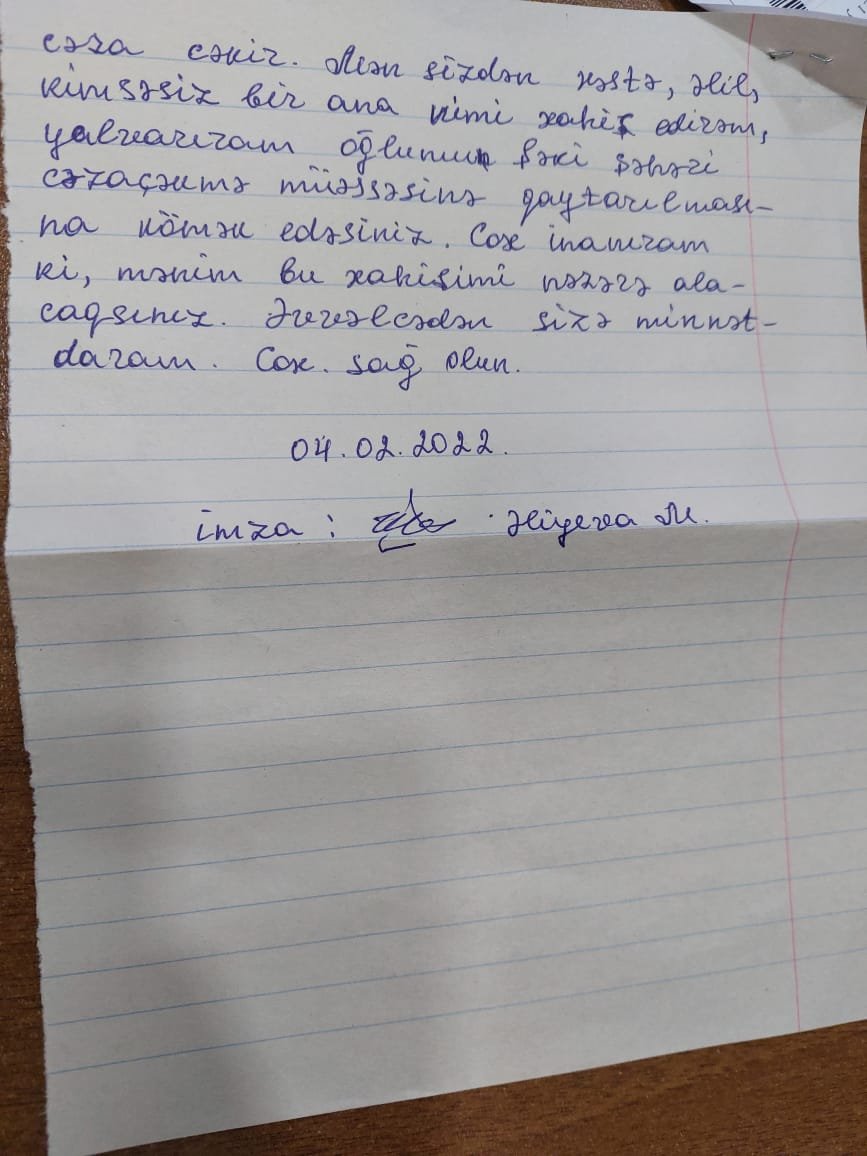 cəza cəkir. Mən sizdən xəstə, əlil,
kimsəsiz bir ana kimi xahiş edirəm,
yalvarıram oğlumun Şəki şəhəri
cəzaçəkmə müəssəsinə qaytarılması-
na kömək edəsiniz. Cox inanıram
ki, mənim bu xahişimi nəzərə ala-
caqsınız. Əvvəlcədən sizə minnət-
daram. Cox. sağ olun.
04.02.2022.
imza : Əliyeva M.